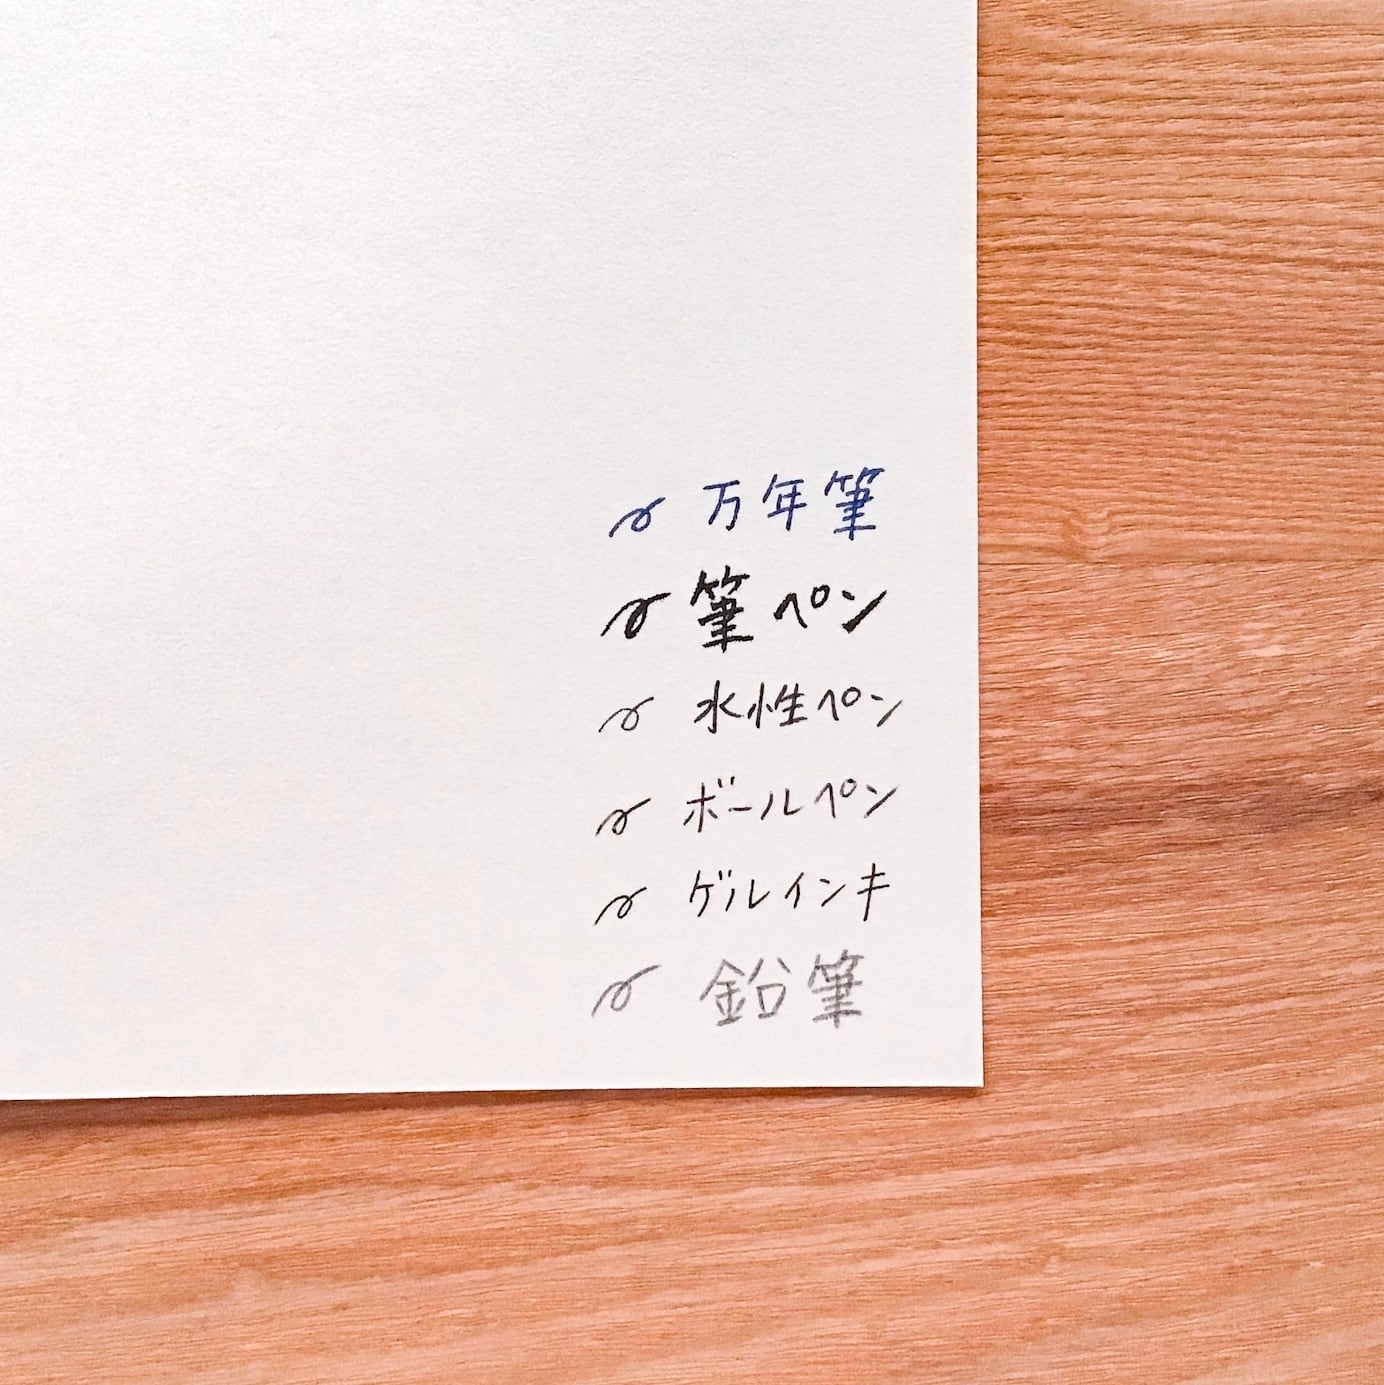 万年筆
筆ペン
水性ペン
ボールペン
ゲルインキ
鉛筆